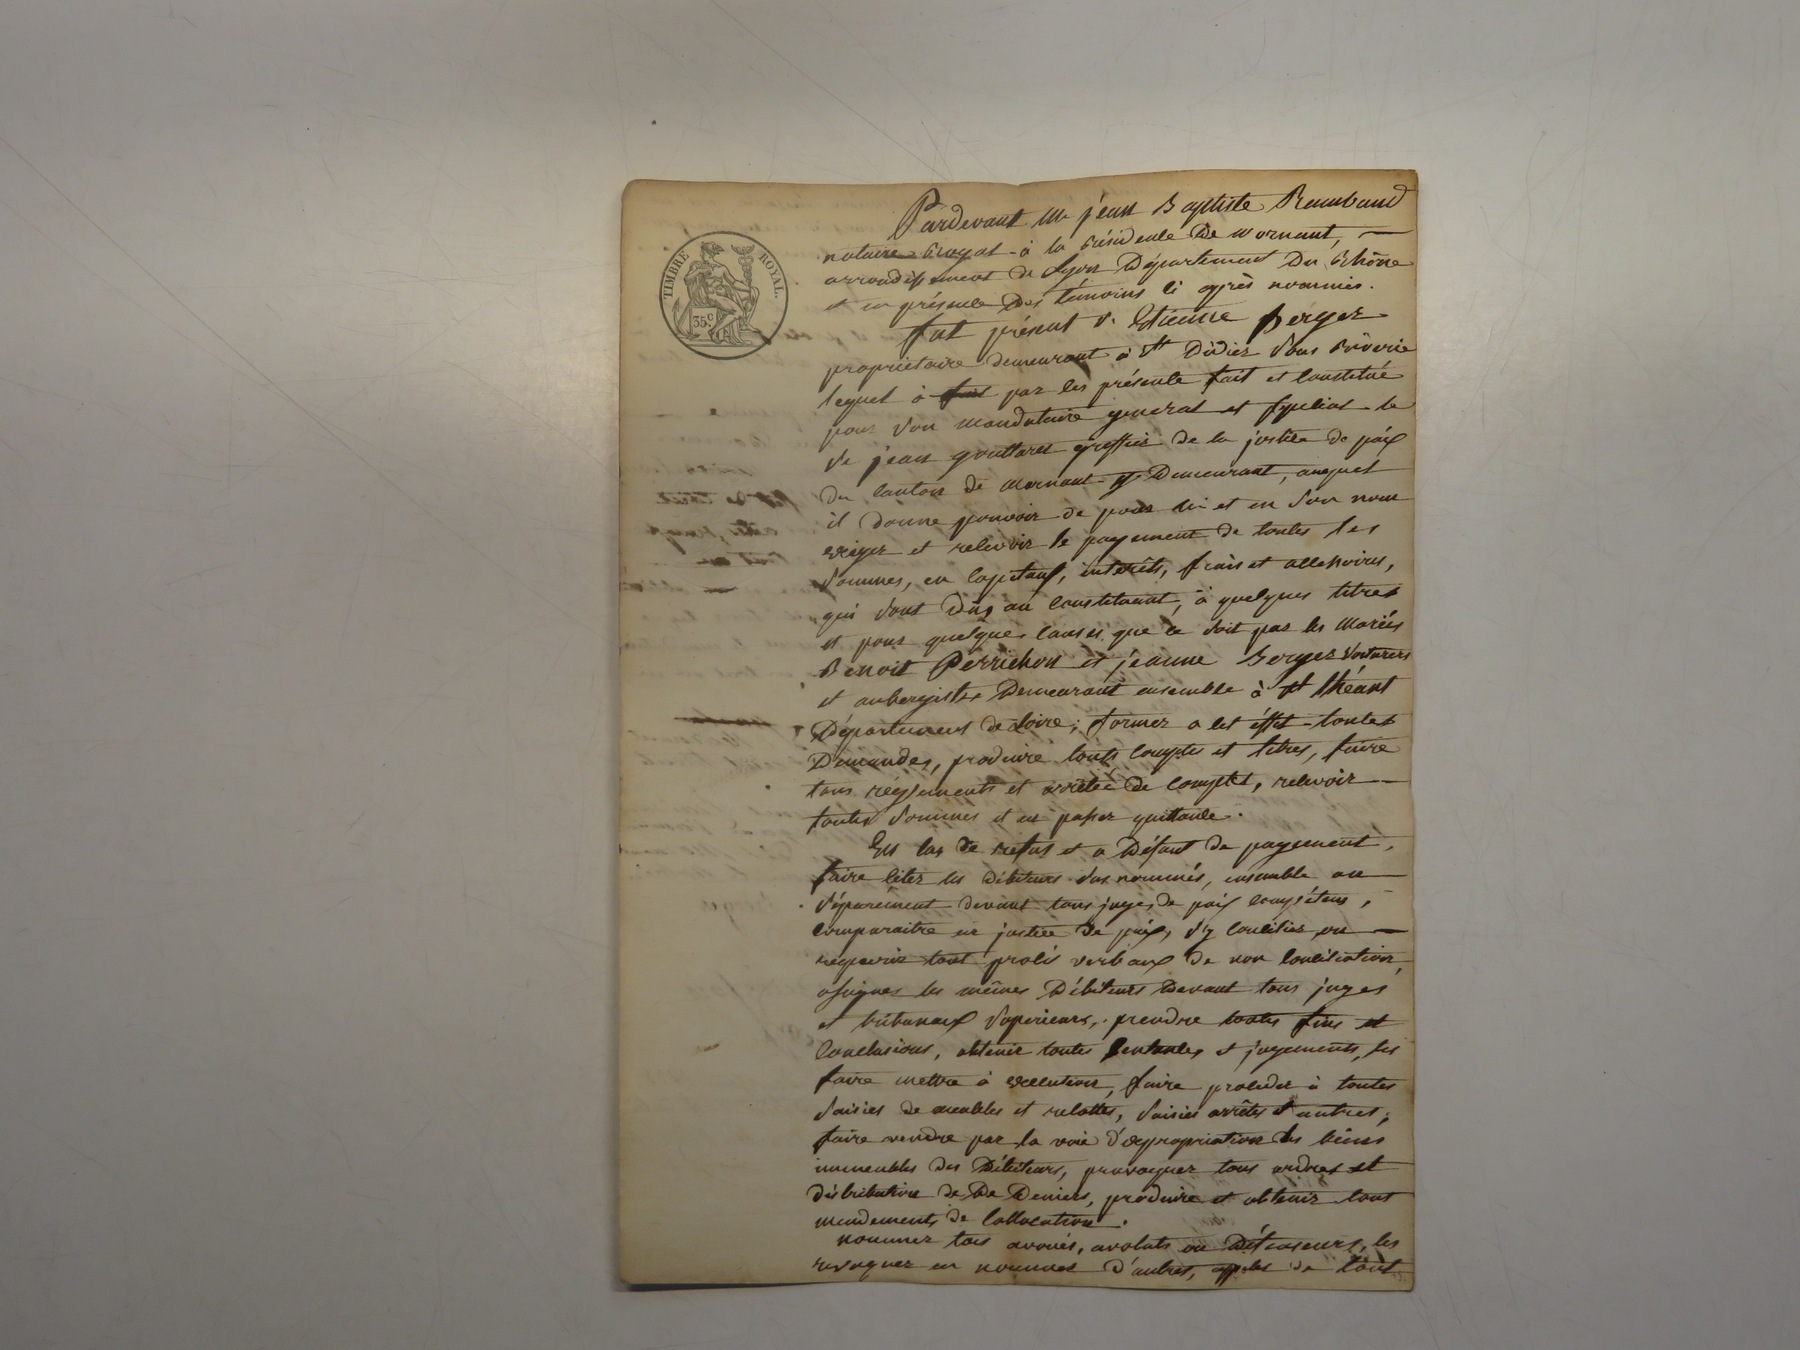 TIMBRE ROYAL.
35.c
Pardevant Me jean Baptiste Raimbaud
notaire Royal à la Résidence De Mornant,
arrondissement de Lyon Département Du Rhône
et en présence Des témoins ci après nommés.
fut présent Sr Etienne Berger
propriétaire demeurant à St Didier Sous Riverie
lequel à par les présente fait et Constitué
pour Son mandataire général et spécial le
Sr jean gouttaret greffier de la justice de paix
Du Canton de Mornant y Demeurant, auquel
il donne pouvoir de pour lui et en Son nom
exiger et recevoir le payement de toutes les
Sommes, en Capitaux, intérêts, frais et accessoires,
qui Sont Dus au Constituant, à quelques titres
et pour quelque causes que ce Soit par les Mariés
Benoit Perrichon et jeanne Berger Voituriers
et aubergistes Demeurant ensemble à St théant
Département de Loire; former a cet éffet toutes
Demandes, produire touts comptes et titres, faire
tous reglements et arrêtée de comptes, recevoir
toutes Sommes et en passer quittance.
En Cas de refus et a Défaut de payement,
faire citer les débiteurs Sus nommés, ensemble ou
Séparément devant tous juges de paix compétens,
comparaitre en justice de paix, S'y concilier ou
requerir tout procès verbaux de non Conciliation,
assigner les mêmes Débiteurs Devant tous juges
et tribunaux Superieurs, prendre toutes fins et
Conclusions, obtenir toutes Sentences et jugements, les
faire mettre à execution, faire proceder à toutes
Saisies de meubles et recoltes, Saisies arrêtes et autres;
faire vendre par la voie d'expropriation les biens
immeubles des Débiteurs, provoquer tous ordres et
distribution de De Deniers, produire et obtenir tout
mandements de Collocation.
nommer tous avoués, avocats ou Défenseurs, les
revoquer en nommer D'autres, appeler de tout